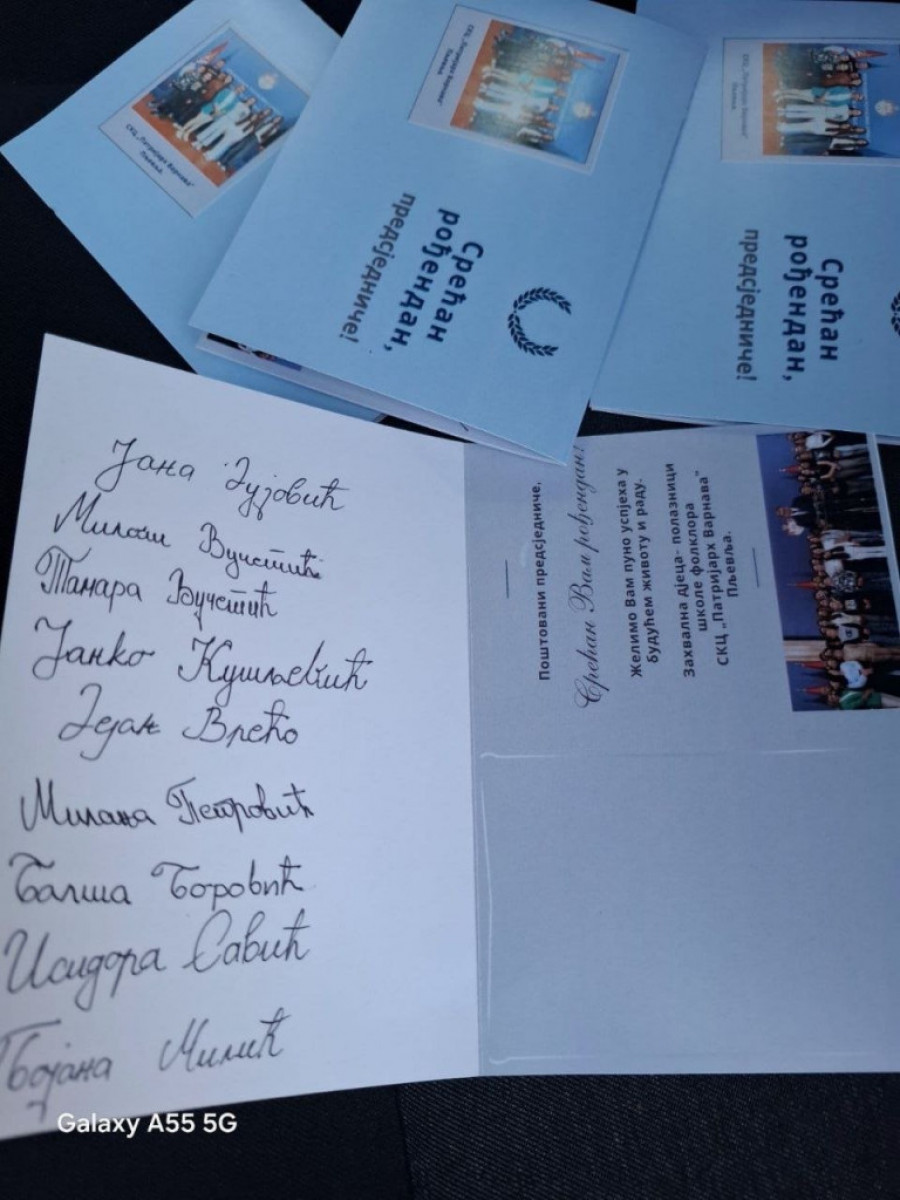 СКЦ „Патријарх Варнава"
Пљевља
СКЦ „Патријарх Варнава"
Пљевља
СКЦ „Патријарх Варнава"
Пљевља
Срећан
рођендан,
предсједниче!
Срећан
рођендан,
предсједниче!
Јана Зујовић
Милош Вучетић
Тамара Вучетић
Јанко Кушљевић
Зејан Врећо
Милана Петровић
Балша Боровић
Исидора Савић
Бојана Милић
Поштовани предсједниче,
Срећан Вам рођендан!
Желимо Вам пуно успјеха у
будућем животу и раду.
Захвална дјеца- полазници
школе фолклора
СКЦ „Патријарх Варнава"
Пљевља.
Galaxy A55 5G